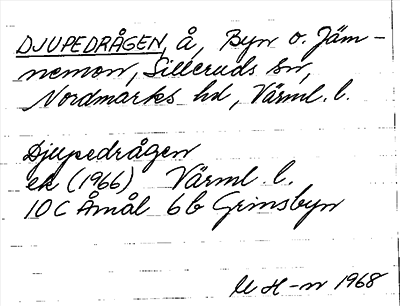 DJUPEDRÅGEN, å, Byn o. Jäm-
nemon, Silleruds sn,
Nordmarks hd, Värml. l.
Djupedrågen
ek (1966) Värml. l.
10 C Åmål 6 b Grinsbyn
U H-n 1968